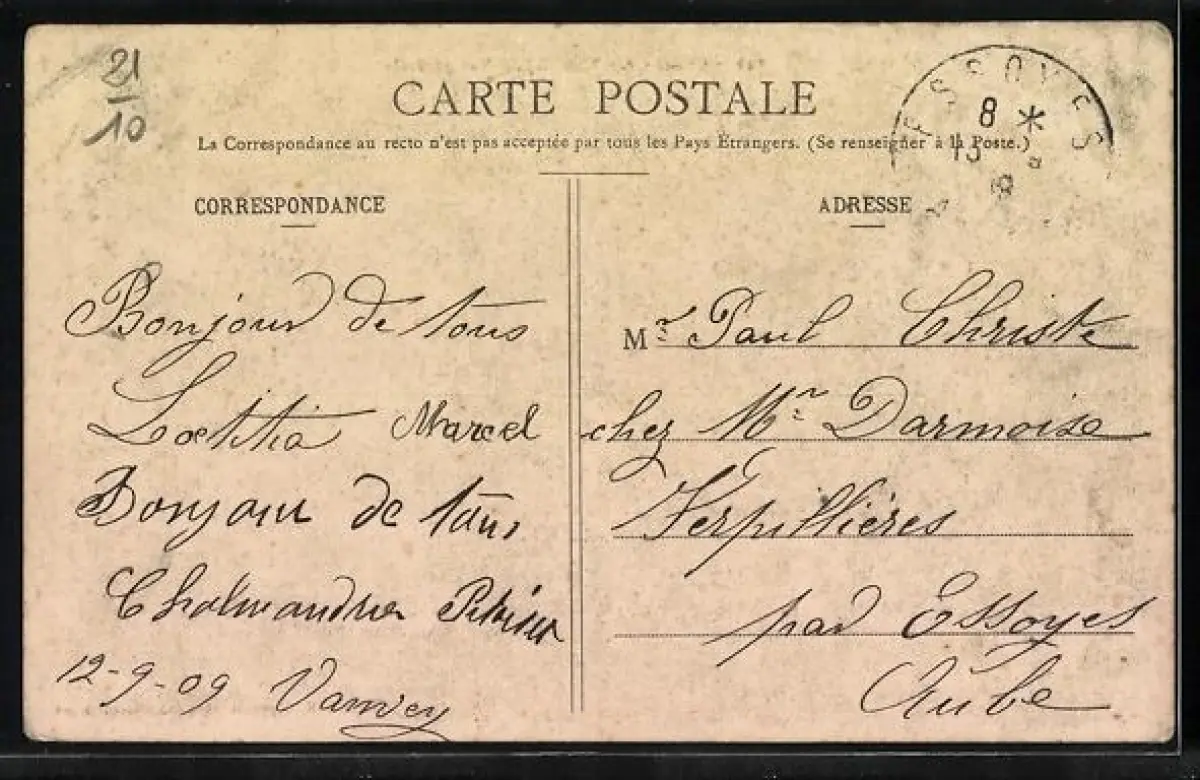 21
10
CARTE POSTALE
La Correspondance au recto n'est pas acceptée par tous les Pays Étrangers. (Se renseigner à la Poste.)
ESSOYES
8 *
13
CORRESPONDANCE
Bonjour de tous
Lœtitia Marcel
Bonjour de tous
12-9-09 Vanvey
ADRESSE
Mr Paul Christe
chez Mr Darmoise
Verpillières
par Essoyes
Aube